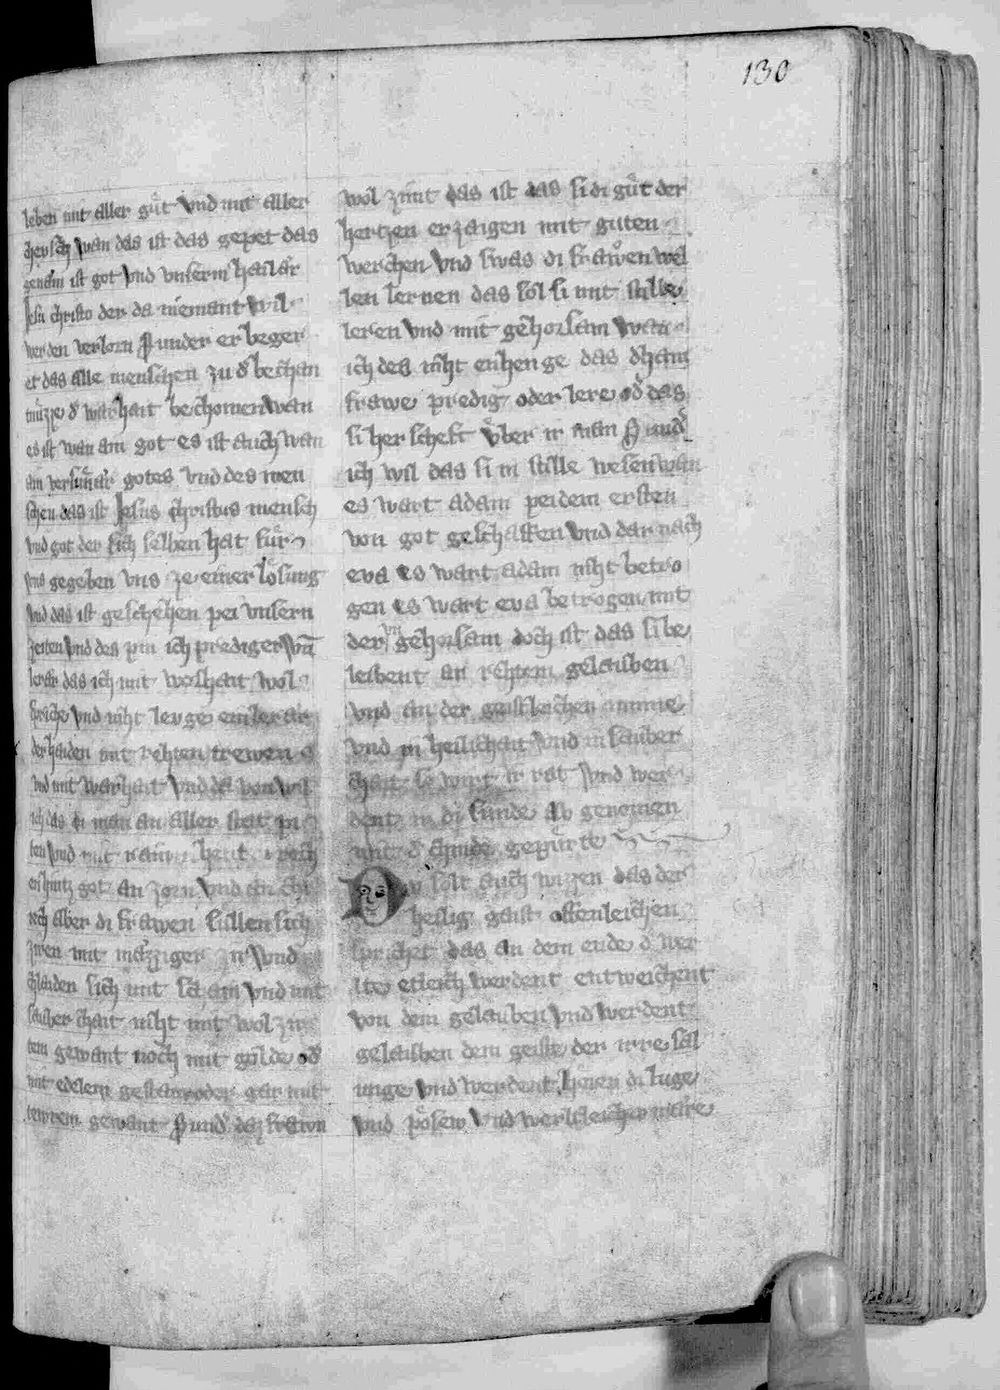 130
leben mit aller gůt vnd mit aller
cheusch wan das ist das gepet das
genam ist got vnd vnserm hailar
Jesu christo der da niemant wil
werden verlorn Sunder er beger
et das alle menschen zu d̓ bechan
nuzze d̓ warhait bechomen wan
es ist wan ain got es ist auch wan
ain versunar gotes vnd des men
schen das ist Jesus christus mensch
vnd got der sich selben hat fur
vns gegeben vns ze einer losung
vnd das ist geschehen pei vnsern
zeiten vnd des pin ich prediger vn̄
lerar das ich mit weishait wol
spriche vnd niht leuge ein lerar
der haiden mit rehten trewen
vnd mit warhait vnd da von wil
ich das di man an aller stat pi
ten vnd mit rainer hent
got an zorn vnd an chr
aber di frawen sullen sich
ziren mit mazziger zir vnd
chlaiden sich mit scham vnd mit
sauberchait niht mit wol
tem gewant noch mit golde od̓
mit edelem gestain oder gar mit
tewrem gewant Sund̓ daz frawn
wol zimt das ist das si di gůt der
hertzen erzaigen mit guten
werchen vnd swas di frawen wel
len lernen das sol si mit stille
leren vnd mit gehorsam wan
ich des niht enhenge das dhain
frawe predig oder lere od̓ das
si herscheft vber ir man Sund̓
ich wil das si in stille wesen wan
es wart adam pei dem ersten
von got geschaffen vnd dar nach
eva es wart adam niht betro
gen es wart eva betrogen mit
der vngehorsam doch ist das si be
leibent an rehtem gelauben
vnd an der geistleichen minne
vnd in heilichait vnd in sauber
chait so wirt ir rat vnd wer
dent in di sunde ab genomen
mit d̓ chinde gepurte
Dv solt auch wizzen das der
heilig gaist offenleichen
sprichet das an dem ende d̓ wer
lte etleich werdent entweichent
von dem gelauben vnd werdent
gelauben dem geiste der irre sal
unge vnd werdent horen di luge
vnd posew vnd werltleichew mare